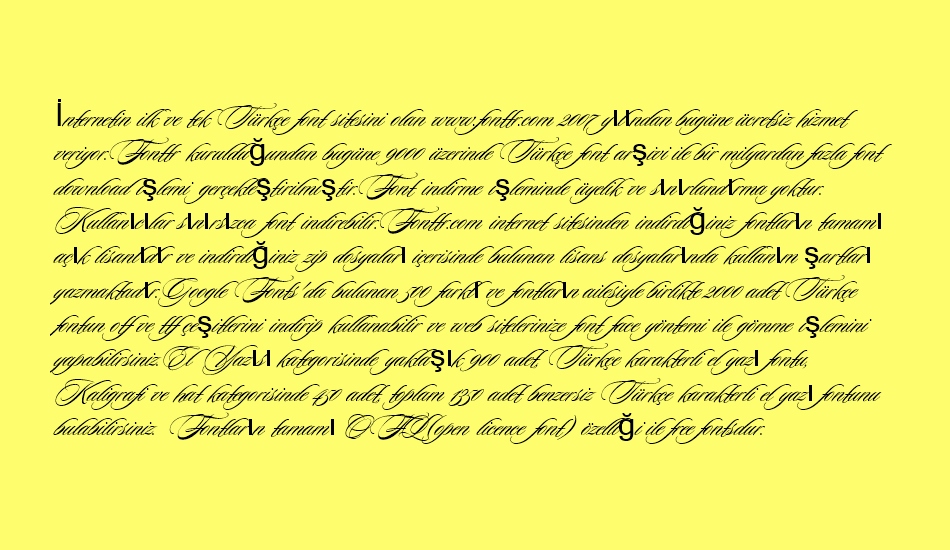 İnternetin ilk ve tek Türkçe font sitesini olan www.fonttr.com 2007 yılından bugüne ücretsiz hizmet
veriyor.Fonttr kurulduğundan bugüne 9000 üzerinde Türkçe font arşivi ile bir milyardan fazla font
download işlemi gerçekleştirilmiştir.Font indirme işleminde üyelik ve sınırlandırma yoktur.
Kullanıcılar sınırsızca font indirebilir.Fonttr.com internet sitesinden indirdiğiniz fontların tamamı
açık lisanlıdır ve indirdiğiniz zip dosyaları içerisinde bulunan lisans dosyalarında kullanım şartları
yazmaktadır.Google Fonts'da bulunan 500 farklı ve fontların ailesiyle birlikte 2000 adet Türkçe
fontun otf ve ttf çeşitlerini indirip kullanabilir ve web sitelerinize font face yöntemi ile gömme işlemini
yapabilirsiniz.El Yazılı kategorisinde yaklaşık 900 adet Türkçe karakterli el yazı fontu,
Kaligrafi ve hat kategorisinde 450 adet, toplam 1350 adet benzersiz Türkçe karakterli el yazı fontunu
bulabilirsiniz. Fontların tamamı OFL(open licence font) özelliği ile free fontsdur.